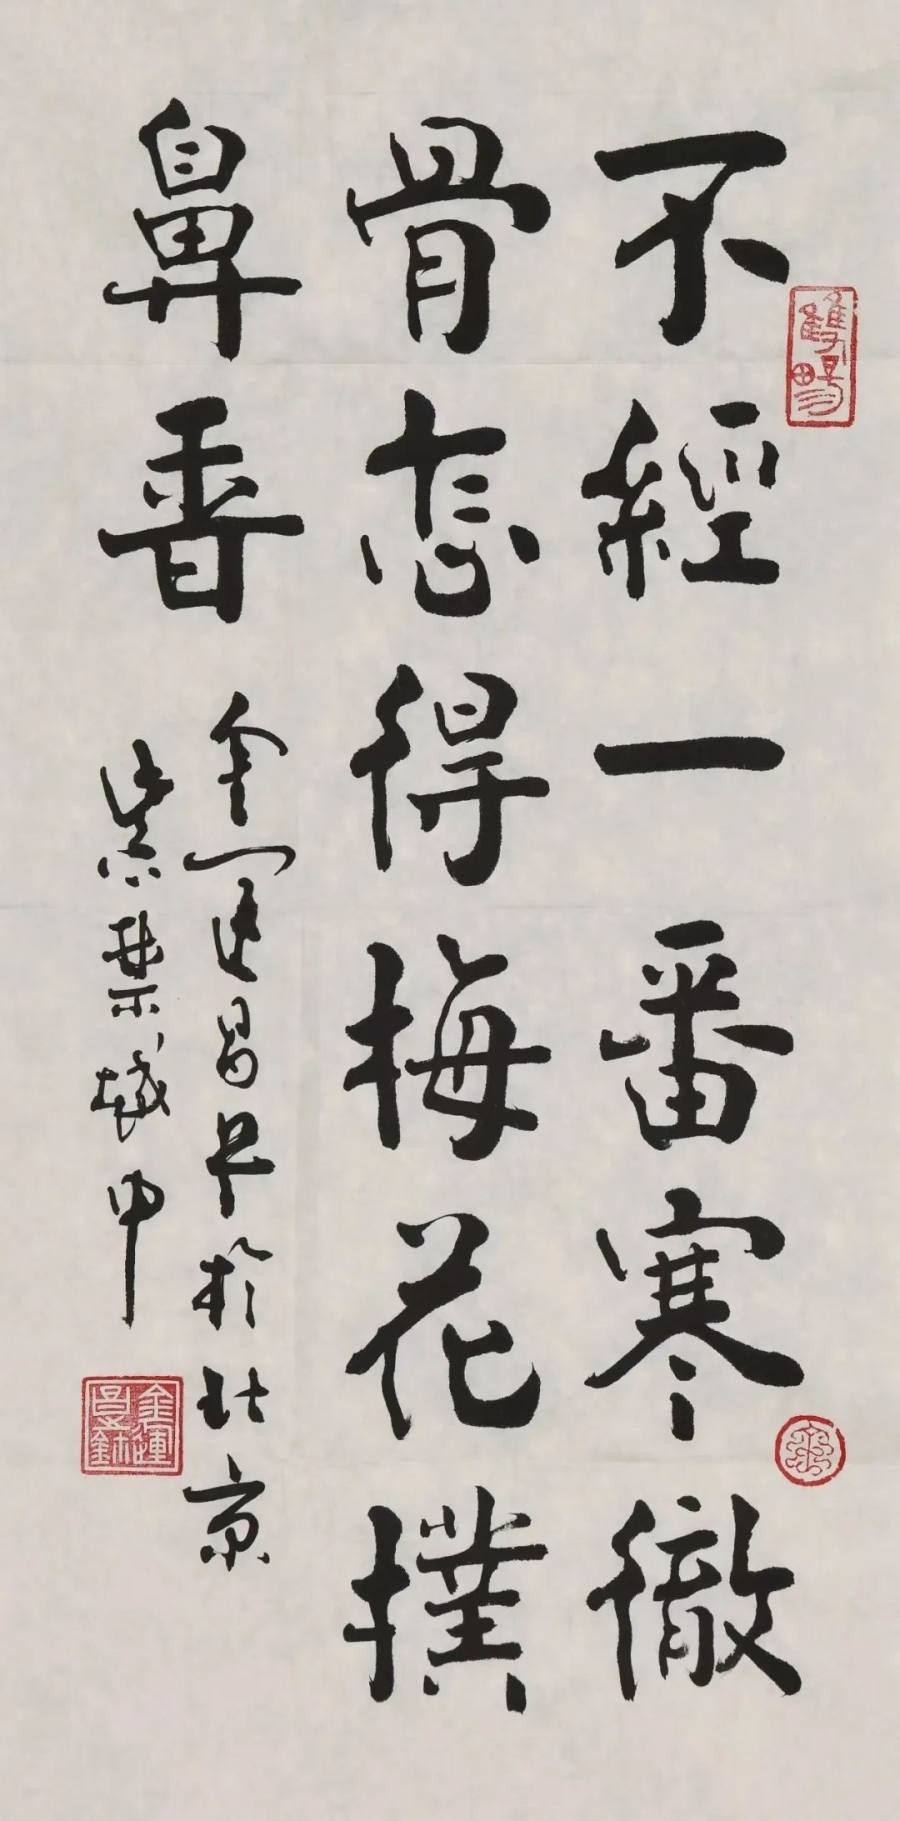 不經一番寒徹
骨怎得梅花撲
鼻香
金運昌书於北京
紫禁城中
金運昌